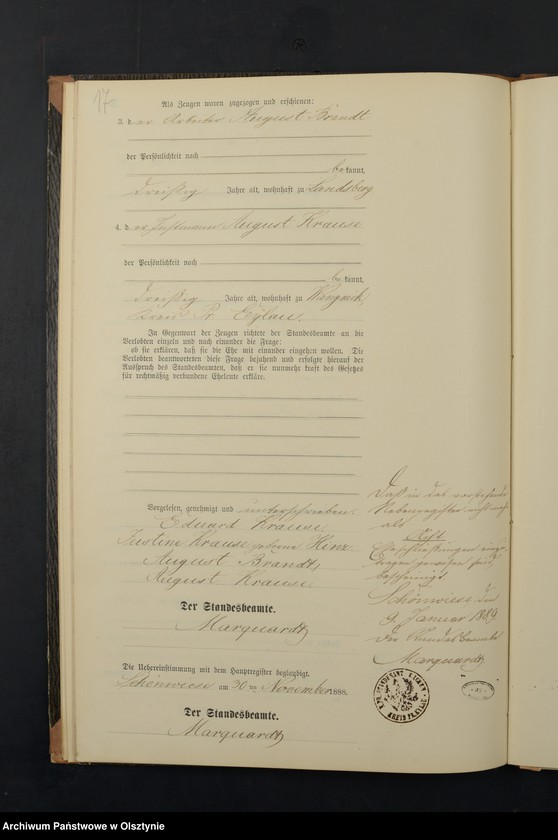 17
Als Zeugen waren zugezogen und erschienen:
3. der Arbeiter August Brandt
der Persönlichkeit nach
bekannt,
dreißig Jahre alt, wohnhaft zu Landsberg
4. der Instmann August Krause
der Persönlichkeit nach
bekannt,
dreißig Jahre alt, wohnhaft zu
Kreis Pr. Eylau.
In Gegenwart der Zeugen richtete der Standesbeamte an die
Verlobten einzeln und nach einander die Frage:
ob sie erklären, daß sie die Ehe mit einander eingehen wollen. Die
Verlobten beantworteten diese Frage bejahend und erfolgte hierauf der
Ausspruch des Standesbeamten, daß er sie nunmehr kraft des Gesetzes
für rechtmäßig verbundene Eheleute erkläre.
Vorgelesen, genehmigt und unterschrieben.
Eduard Krause
Justine Krause geborne Hinz
August Brandt
August Krause
Der Standesbeamte.
Marquardt
Die Uebereinstimmung mit dem Hauptregister beglaubigt.
Schönwiese am 30ten November 1888.
Der Standesbeamte.
Marquardt
Daß in das vorstehende
Nebenregister nicht mehr
als
Acht
Eheschließungen einge-
tragen gewesen sind
bescheinigt.
Schönwiese den
9. Januar 1889
Der Standesbeamte
Marquardt
Archiwum Państwowe w Olsztynie